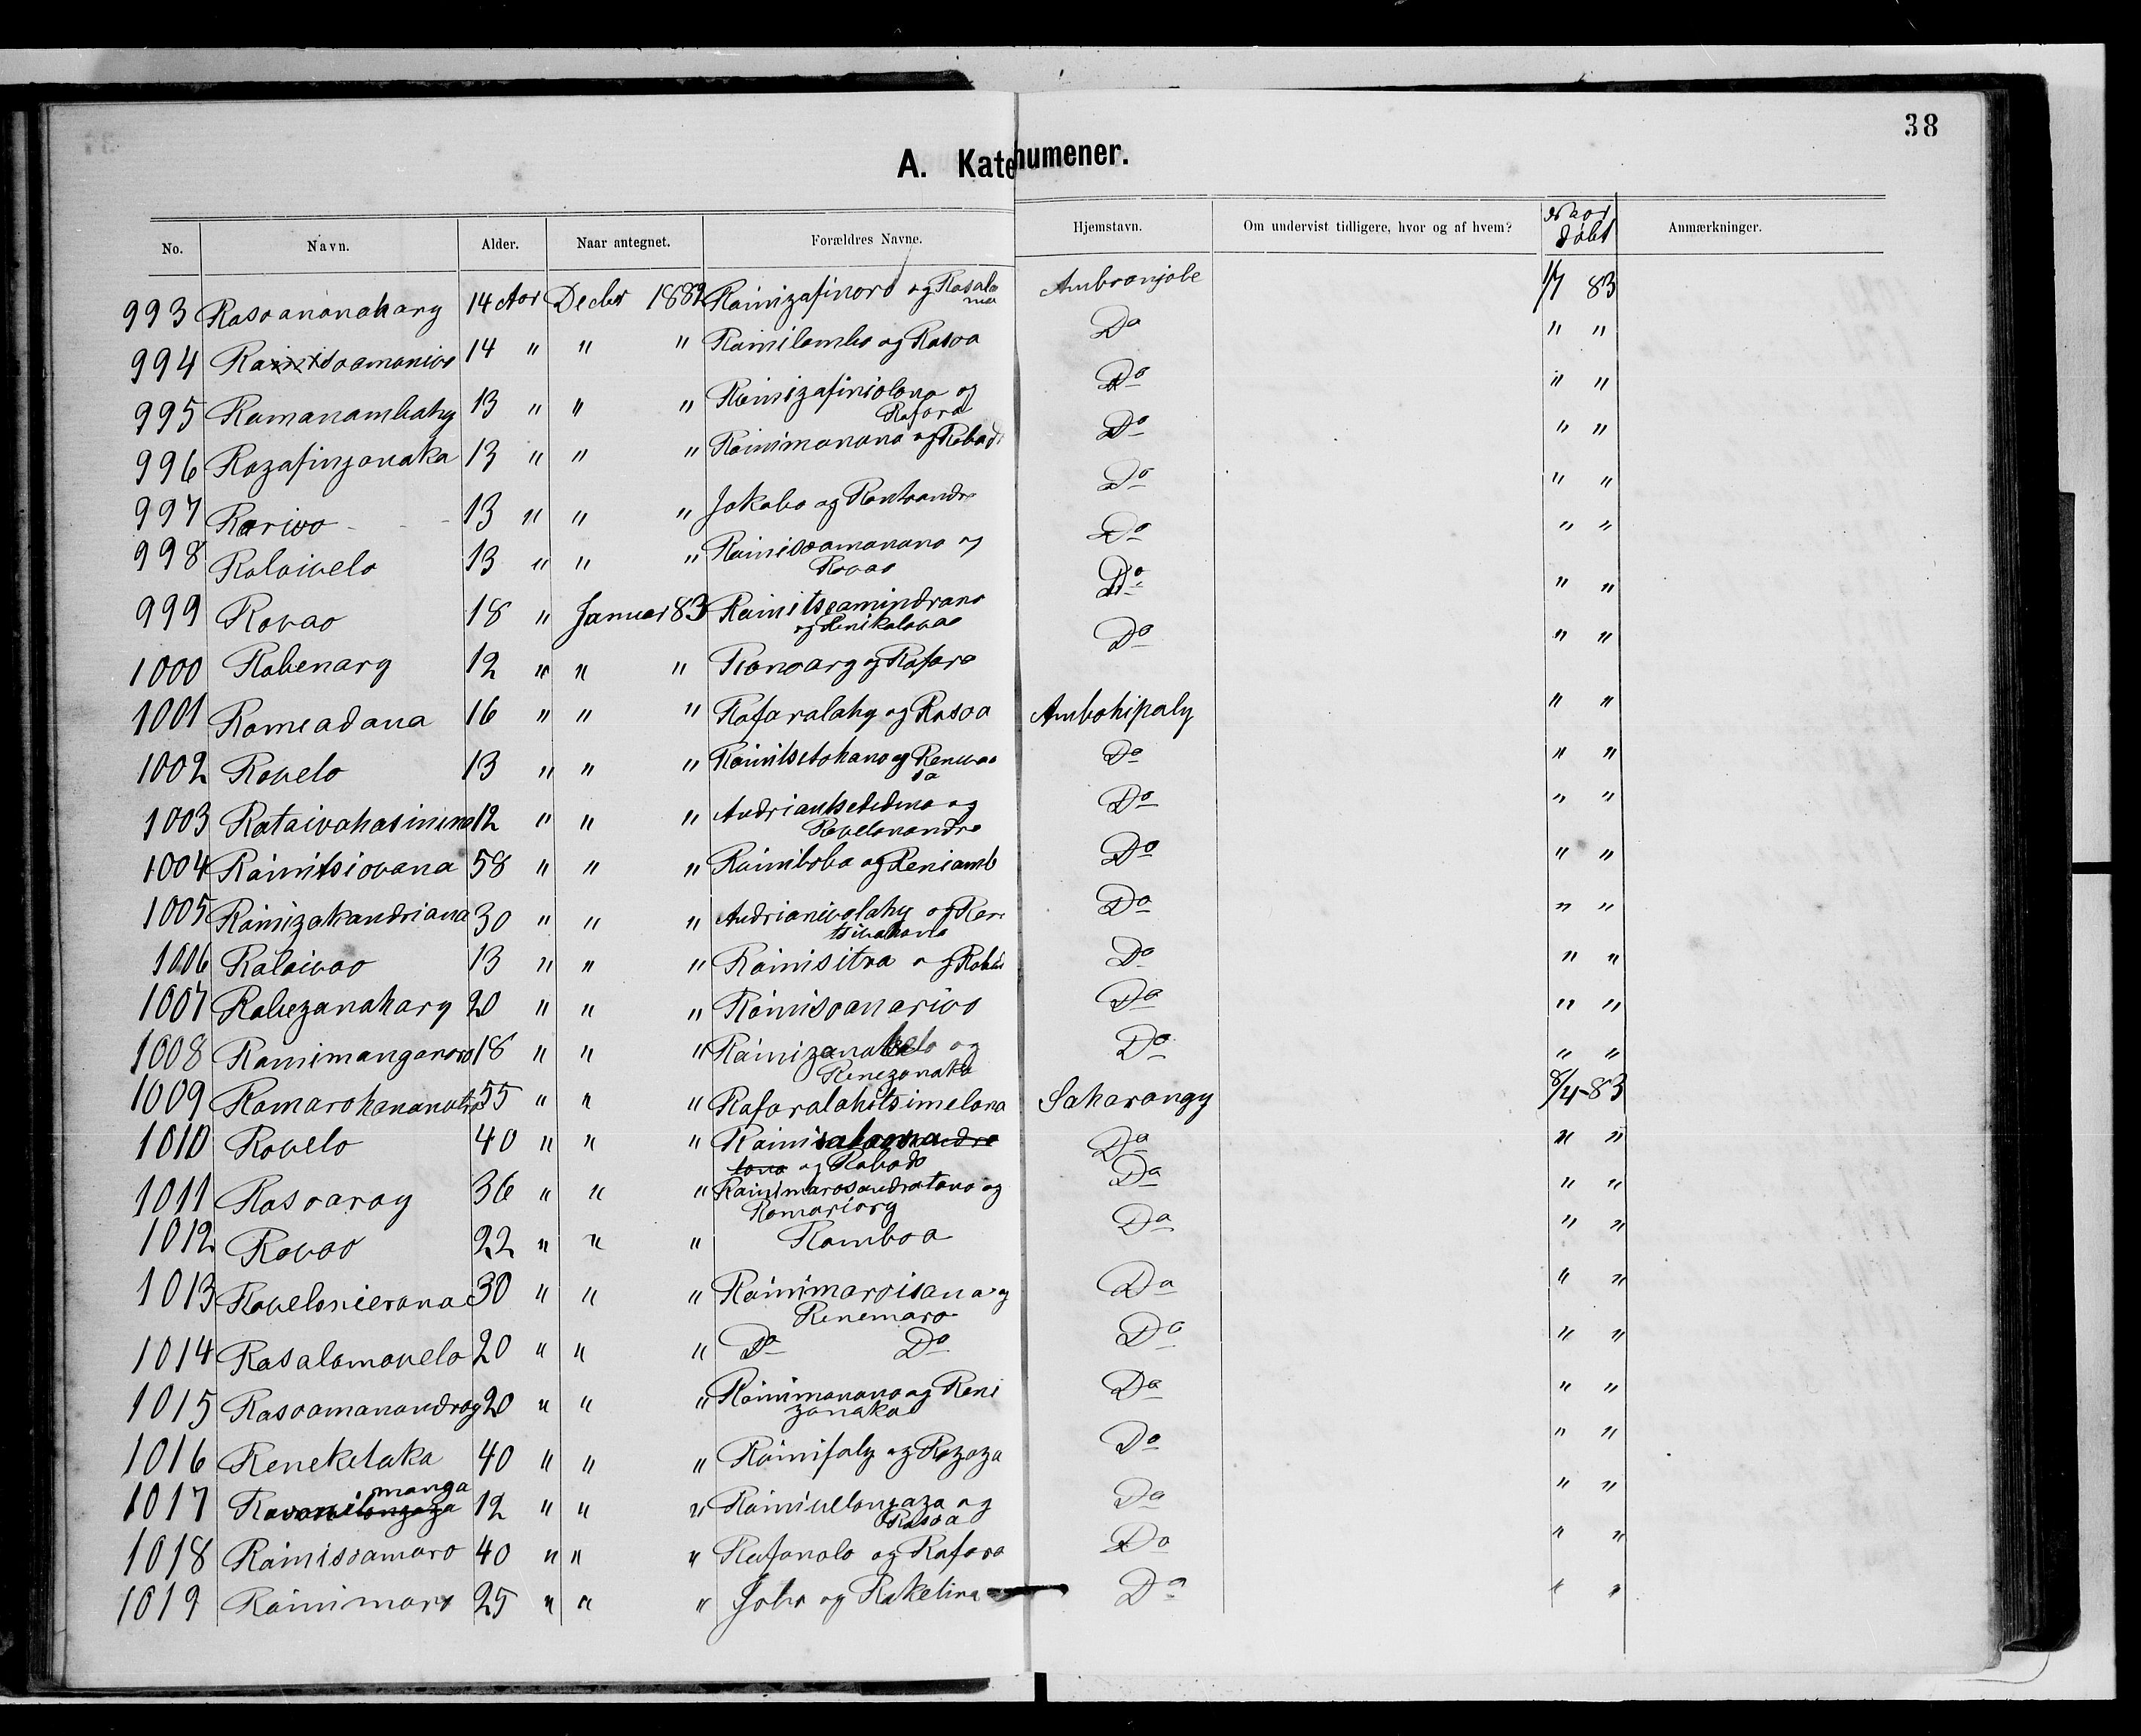 38
A. Katehumener.
No. Navn. Alder. Naar antegnet. Forældres Navne. Hjemstavn. Om undervist tidligere, hvor og af hvem? Naar döbt Anmærkninger.
993 Rasoananahary 14 Aar Decbr 1882 Rainizafinoro og Rasalama Ambranjobe 1/7 83
994 Rasoamanivo 14 " " " Rainilambo og Rasoa Do " "
995 Ramanambahy 13 " " " Rainizafiniolona og Rafara Do " "
996 Razafinjanaka 13 " " " Rainimanana og Do " "
997 Rarivo 13 " " " Jakobo og Do " "
998 Ralaivelo 13 " " " Rainisoamanana og Ravao Do " "
999 Ravao 18 " Januar 83 Rainitseamindrano og Renikalavao Do " "
1000 Rabenary 12 " " " Ranoary og Rafara Do " "
1001 Rameadana 16 " " " Rafaralahy og Rasoa Ambohipaly " "
1002 Ravelo 13 " " " Rainitsetohano og Do " "
1003 Rataivahasinina 12 " " " og Ravelonandro Do " "
1004 Rainitsiovana 58 " " " Rainiboba og Reniamb Do " "
1005 Rainizakandriana 30 " " " Andrianivolahy og Do " "
1006 Ralaivao 13 " " " Rainisitra og Do " "
1007 Rabezanahary 20 " " " Rainisoanarivo Do " "
1008 Rainimanganoro 18 " " " Rainizanabelo og Renezanaka Do " "
1009 Ramarohananatra 55 " " " Rafaralahitsimelona Saharangy 8/4-83
1010 Ravelo 40 " " " Rainisalama og Rabodo Do " "
1011 Rasoaray 36 " " " Rainimarosandratana og Ramariary Do " "
1012 Ravao 22 " " " Ramboa Do " "
1013 Ravelonierana 30 " " " Rainimaroisana og Renemaro Do " "
1014 Rasalamavelo 20 " " " Do Do Do " "
1015 Rasoamanandray 20 " " " Rainimanana og Renizanaka Do " "
1016 Reneketaka 40 " " " Rainifaly og Razaza Do " "
1017 manga 12 " " " Rainivelonzaza og Rasoa Do " "
1018 Rainisoamaro 40 " " " Rafanalo og Rafara Do " "
1019 Rainimaro 25 " " " Joba og Rakelina Do " "